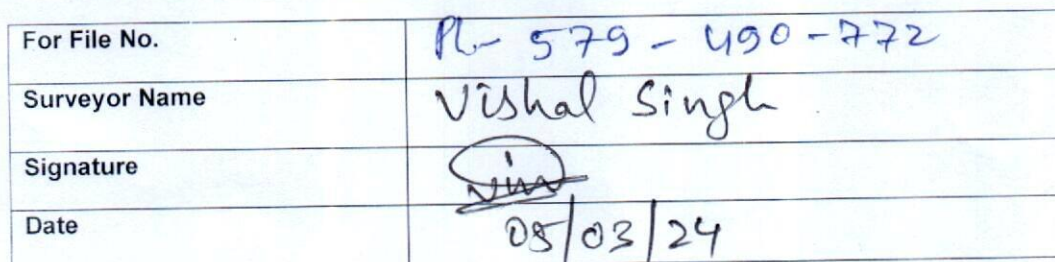 For File No. PL- 579 - 490 - 772
Surveyor Name Vishal Singh
Signature
Date 05/03/24